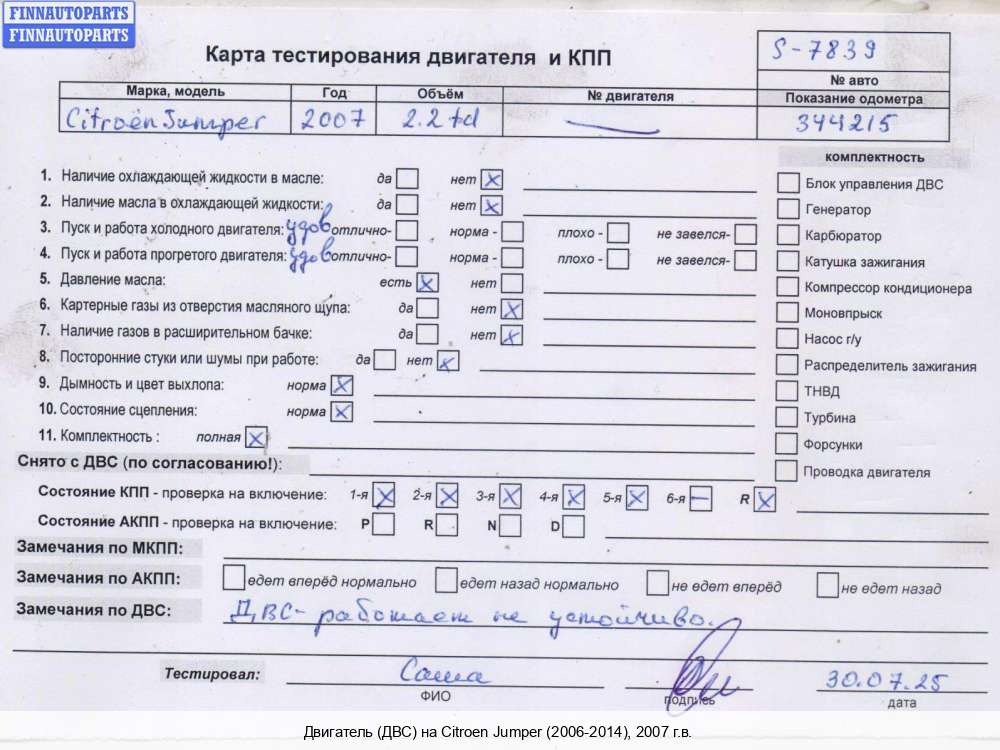 FINNAUTOPARTS
FINNAUTOPARTS
Карта тестирования двигателя и КПП
S-7839
№ авто
Марка, модель Год Объём № двигателя Показание одометра
Citroën Jumper 2007 2.2 td — 344215
комплектность
1. Наличие охлаждающей жидкости в масле: да нет X
Блок управления ДВС
2. Наличие масла в охлаждающей жидкости: да нет X
Генератор
3. Пуск и работа холодного двигателя: удов отлично- норма - плохо - не завелся-
Карбюратор
4. Пуск и работа прогретого двигателя: удов отлично- норма - плохо - не завелся-
Катушка зажигания
5. Давление масла: есть X нет
Компрессор кондиционера
6. Картерные газы из отверстия масляного щупа: да нет X
Моновпрыск
7. Наличие газов в расширительном бачке: да нет X
Насос г/у
8. Посторонние стуки или шумы при работе: да нет X
Распределитель зажигания
9. Дымность и цвет выхлопа: норма X
ТНВД
10. Состояние сцепления: норма X
Турбина
11. Комплектность : полная X
Форсунки
Снято с ДВС (по согласованию!):
Проводка двигателя
Состояние КПП - проверка на включение: 1-я X 2-я X 3-я X 4-я X 5-я X 6-я — R X
Состояние АКПП - проверка на включение: P R N D
Замечания по МКПП:
Замечания по АКПП: едет вперёд нормально едет назад нормально не едет вперёд не едет назад
Замечания по ДВС: ДВС- работает не устойчиво.
Тестировал: Саша 30.07.25
ФИО подпись дата
Двигатель (ДВС) на Citroen Jumper (2006-2014), 2007 г.в.